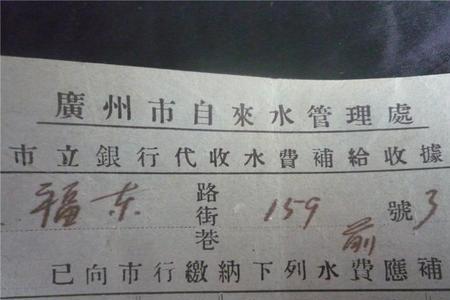 廣州市自來水管理處
市立銀行代收水費補給收據
福東 路街巷 159 號 3
前
已向市行繳納下列水費應補